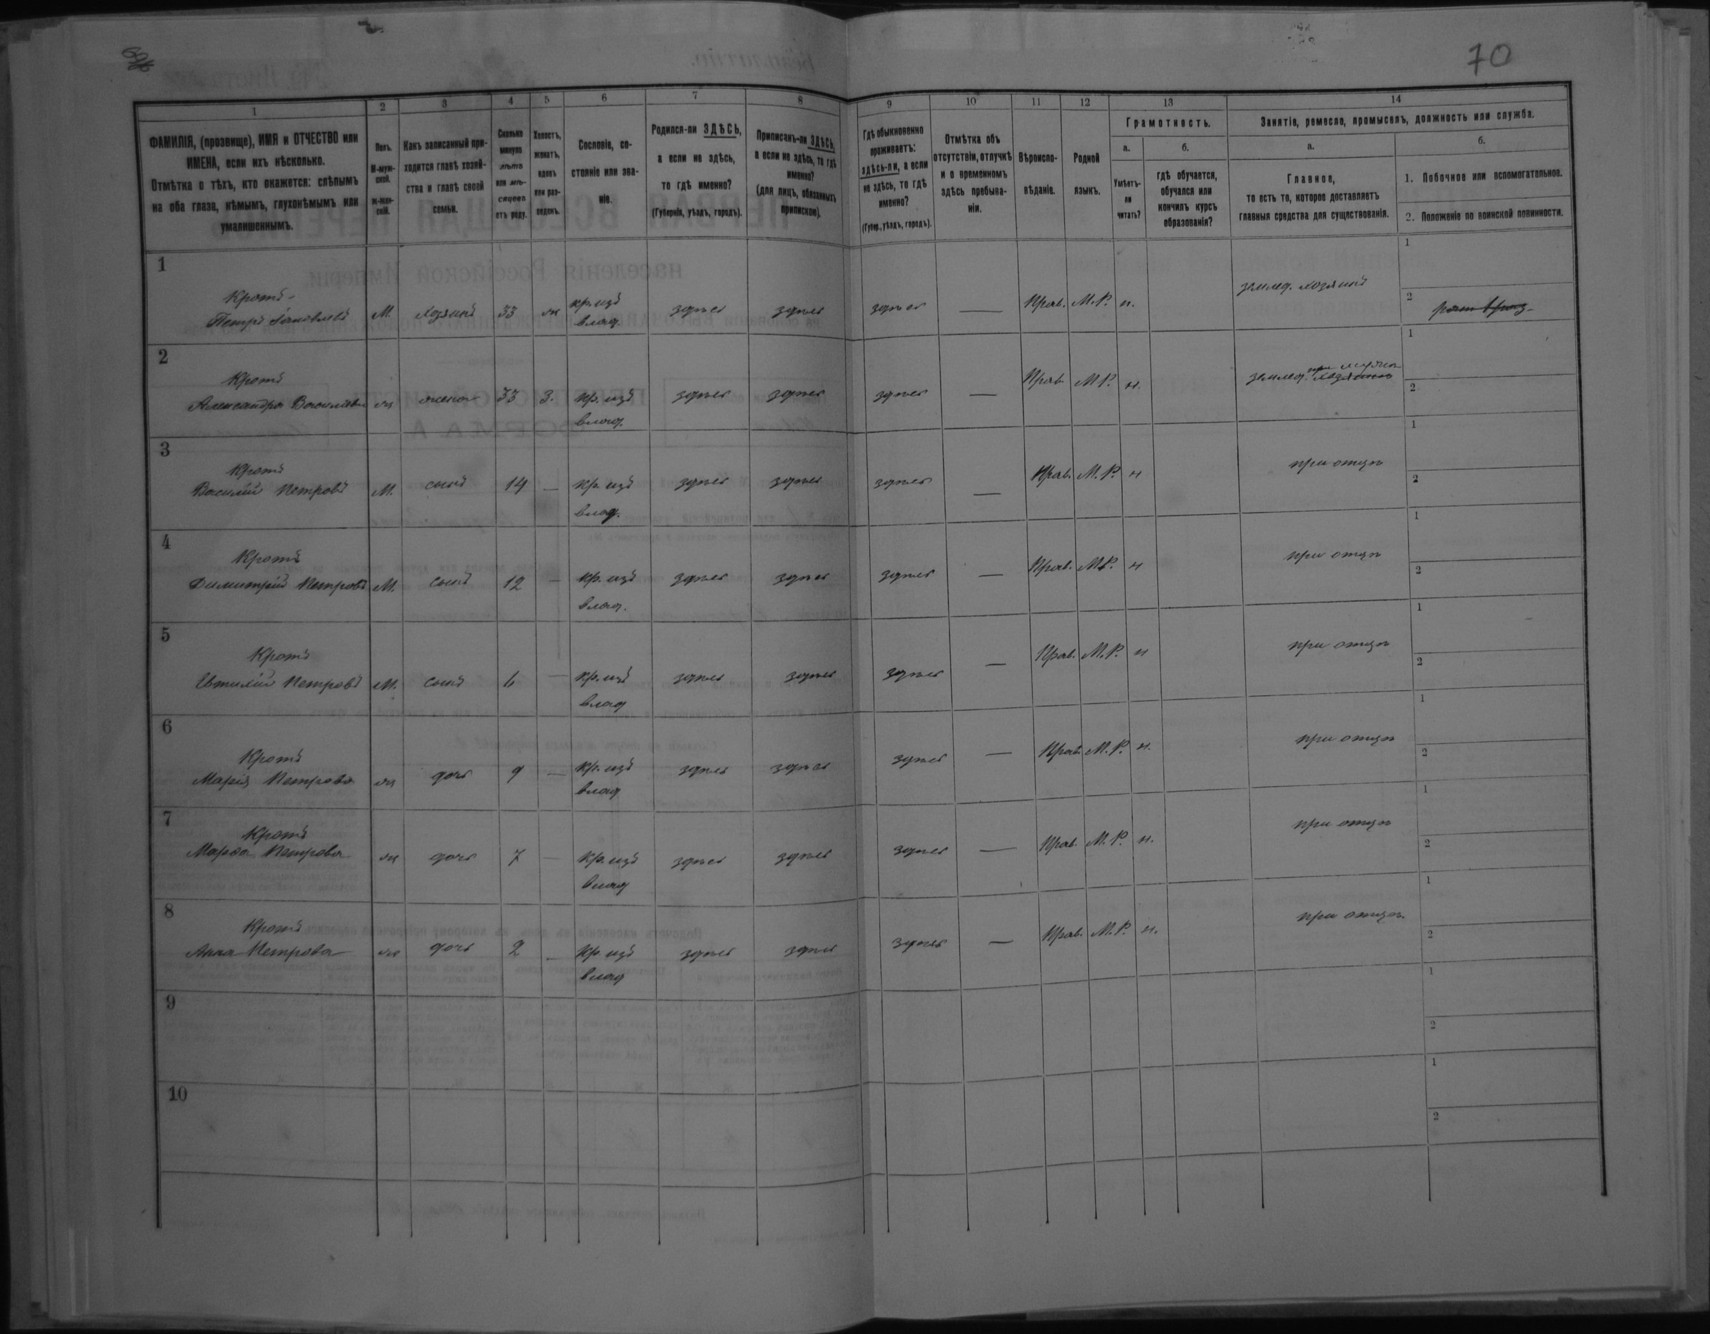 70
1 2 3 4 5 6 7 8 9 10 11 12 13 14
ФАМИЛІЯ, (прозвище), ИМЯ и ОТЧЕСТВО или
ИМЕНА, если ихъ нѣсколько.
Отмѣтка о тѣхъ, кто окажется: слѣпымъ
на оба глаза, нѣмымъ, глухонѣмымъ или
умалишеннымъ.
Полъ.
М-муж-
ской.
Ж-жен-
скій.
Какъ записанный при-
ходится главѣ хозяй-
ства и главѣ своей
семьи.
Сколько
минуло
лѣтъ
или мѣ-
сяцевъ
отъ роду.
Холостъ,
женатъ,
вдовъ
или раз-
веденъ.
Сословіе, со-
стояніе или зва-
ніе.
Родился-ли ЗДѢСЬ,
а если не здѣсь,
то гдѣ именно?
(Губернія, уѣздъ, городъ).
Приписанъ-ли ЗДѢСЬ,
а если не здѣсь, то гдѣ
именно?
(для лицъ, обязанныхъ
припискою).
Гдѣ обыкновенно
проживаетъ:
здѣсь-ли, а если
не здѣсь, то гдѣ
именно?
(Губер., уѣздъ, городъ).
Отмѣтка объ
отсутствіи, отлучкѣ
и о временномъ
здѣсь пребыва-
ніи.
Вѣроиспо-
вѣданіе.
Родной
языкъ.
Грамотность.
а.
Умѣетъ-
ли
читать?
б.
гдѣ обучается,
обучался или
кончилъ курсъ
образованія?
Занятіе, ремесло, промыселъ, должность или служба.
а.
Главное,
то есть то, которое доставляетъ
главныя средства для существованія.
б.
1. Побочное или вспомогательное.
2. Положеніе по воинской повинности.
1
Кротъ
Петръ Яковлевъ М хозяинъ 33 ж кр. изъ влад. здѣсь здѣсь здѣсь — Прав. М.Р. н. землед. хозяинъ
1
2
2
Кротъ
Александра Васильева ж жена 33 З. кр. изъ влад. здѣсь здѣсь здѣсь — Прав. М.Р. н. землед. при мужѣ
1
2
3
Кротъ
Василій Петровъ М. сынъ 14 — кр. изъ влад. здѣсь здѣсь здѣсь — Прав. М.Р. н при отцѣ
1
2
4
Кротъ
Димитрій Петровъ М. сынъ 12 — кр. изъ влад. здѣсь здѣсь здѣсь — Прав. М.Р. н при отцѣ
1
2
5
Кротъ
Петровъ М. сынъ — кр. изъ влад здѣсь здѣсь здѣсь — Прав. М.Р. н при отцѣ
1
2
6
Кротъ
Марія Петрова ж дочь 9 — кр. изъ влад здѣсь здѣсь здѣсь — Прав. М.Р. н. при отцѣ
1
2
7
Кротъ
Марѳа Петрова ж дочь 7 — кр. изъ влад здѣсь здѣсь здѣсь — Прав. М.Р. н. при отцѣ
1
2
8
Кротъ
Анна Петрова ж дочь 2 — кр. изъ влад здѣсь здѣсь здѣсь — Прав. М.Р. н. при отцѣ
1
2
9
1
2
10
1
2